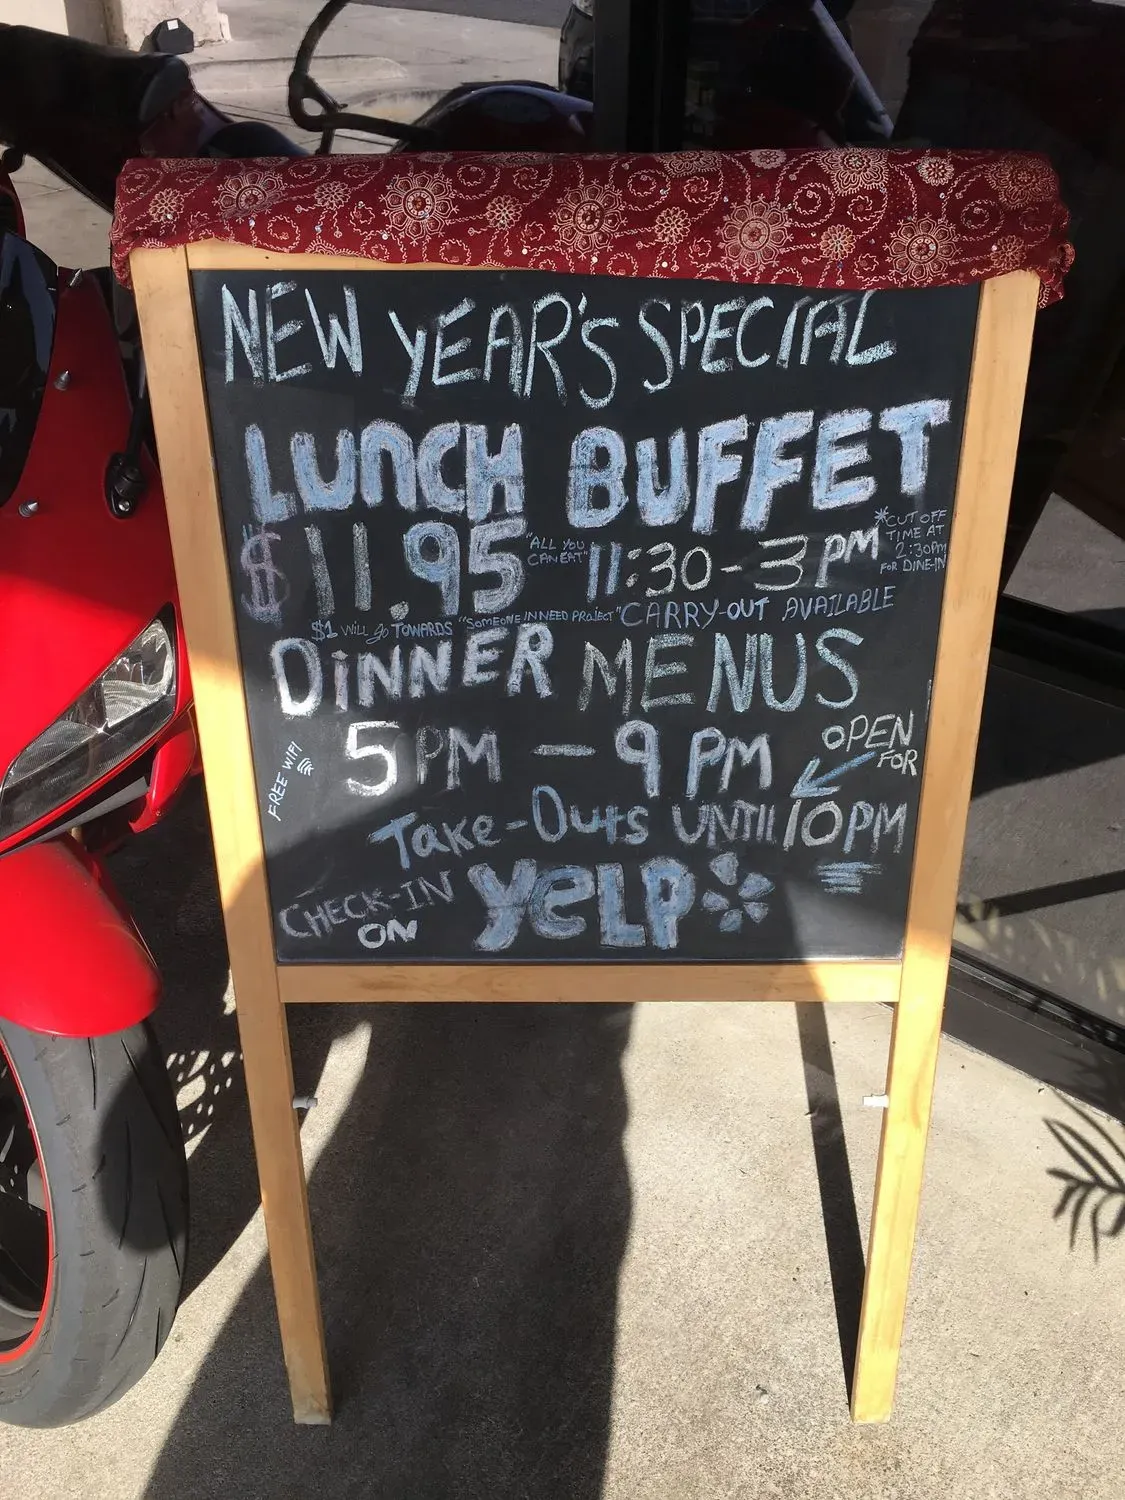 NEW YEAR'S SPECIAL
LUNCH BUFFET
$11.95 "ALL YOU CAN EAT" 11:30-3PM
*CUT OFF
TIME AT
2:30PM
FOR DINE-IN
$1 WILL go TOWARDS "SOMEONE IN NEED PROJECT" CARRY-OUT AVAILABLE
DINNER MENUS
5PM - 9PM
OPEN
FOR
FREE WIFI
Take-Outs UNTIll 10PM
CHECK-IN
ON
yeLP